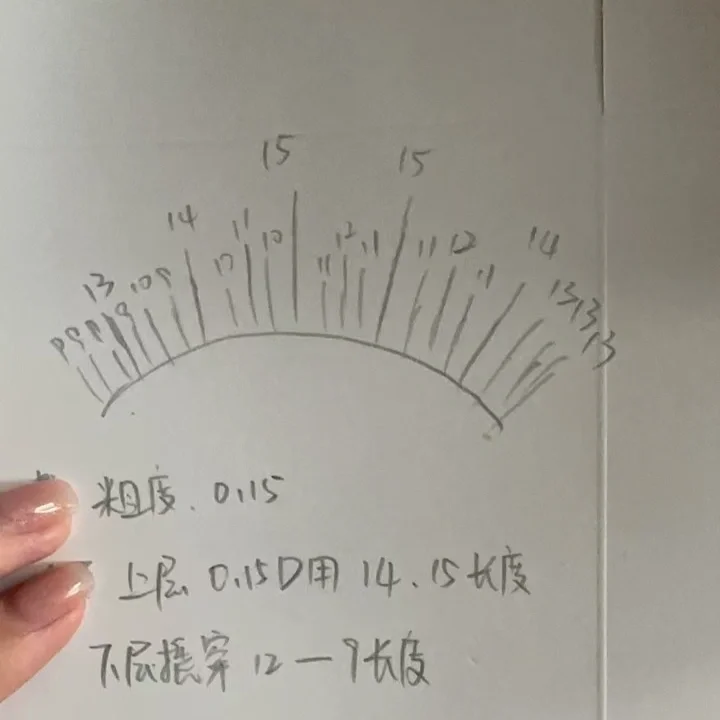 15 15
14 11 10 12 11 11 12 14
13 10 9 10 11 11 13 13 13
9 9
粗度.0.15
上层 0.15D用 14.15长度
下层 12—9长度